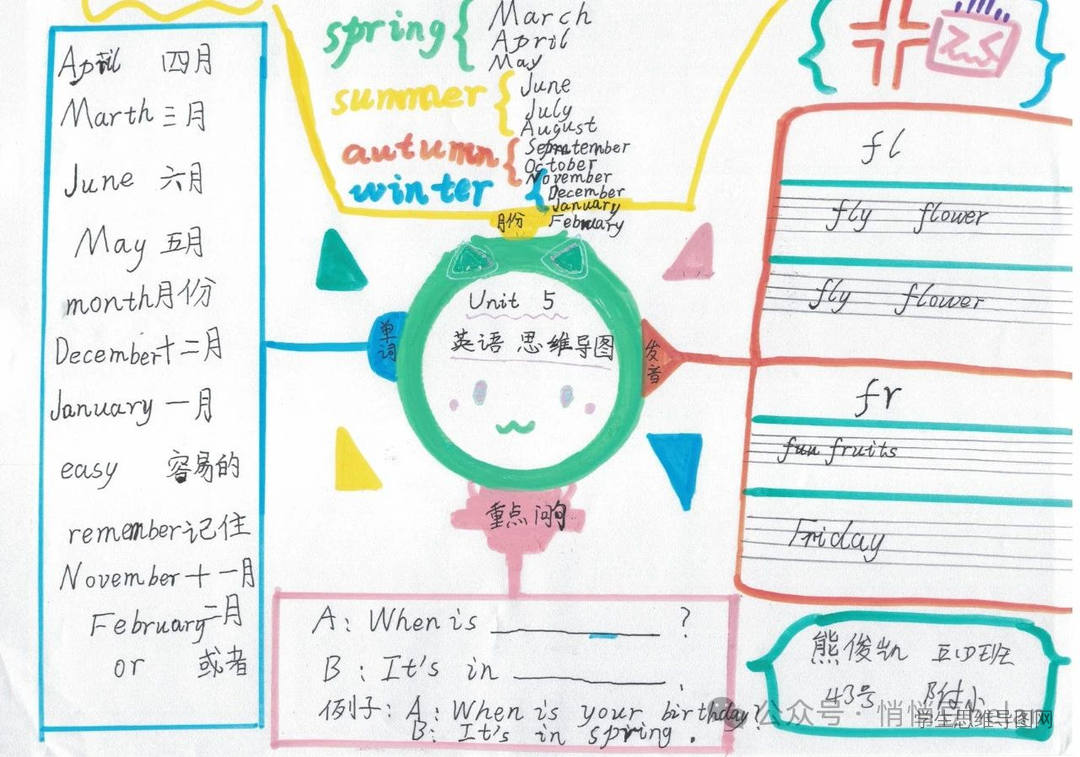 spring
March
April
May
summer
June
July
August
autumn
September
October
November
winter
December
January
February
月份
April 四月
Marth 三月
June 六月
May 五月
month 月份
December 十二月
January 一月
easy 容易的
remember 记住
November 十一月
February 二月
or 或者
单词
Unit 5
英语 思维导图
发音
重点问句
fl
fly flower
fly flower
fr
fruits
Friday
A: When is ________ ?
B: It's in ________.
例子: A: When is your birthday?
B: It's in spring.
熊俊凯
43号 附小
公众号
学生思维导图网